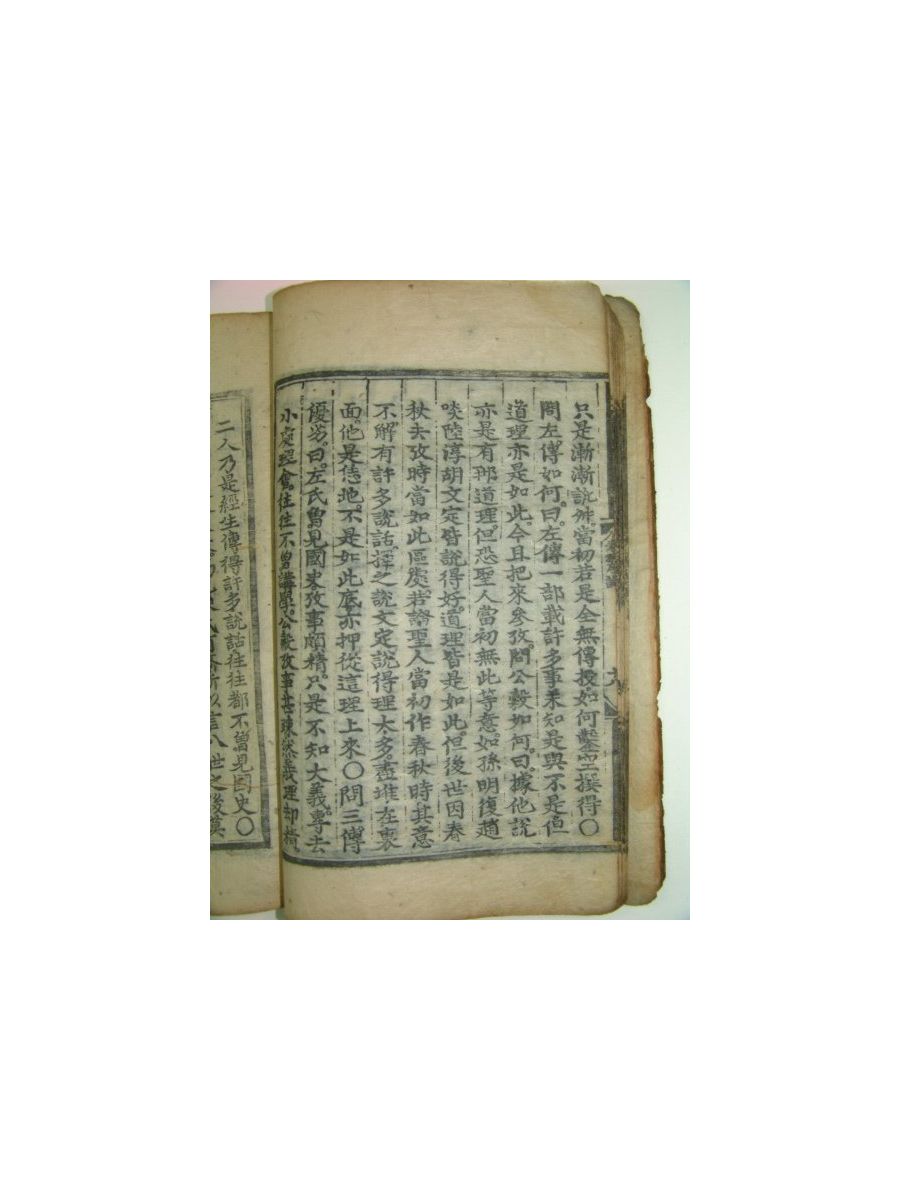 只是漸漸訛舛當初若是全無傳授如何鑿空撰得〇
問左傳如何曰左傳一部載許多事未知是與不是但
道理亦是如此今且把來參攷問公穀如何曰據他說
亦是有那道理但恐聖人當初無此等意如孫明復趙
啖陸淳胡文定皆說得好道理皆是如此但後世因春
秋去攷時當如此區處若論聖人當初作春秋時其意
不解有許多說話擇之說文定說得理太多盡堆在裏
面他是恁地不是如此底亦押從這理上來〇問三傳
優劣曰左氏曾見國史攷事頗精只是不知大義專去
小處理會往往不曾講學公穀攷事甚疎然義理却精
二人乃是經生傳得許多說話往往都不曾見國史〇
所以言八世之後莫